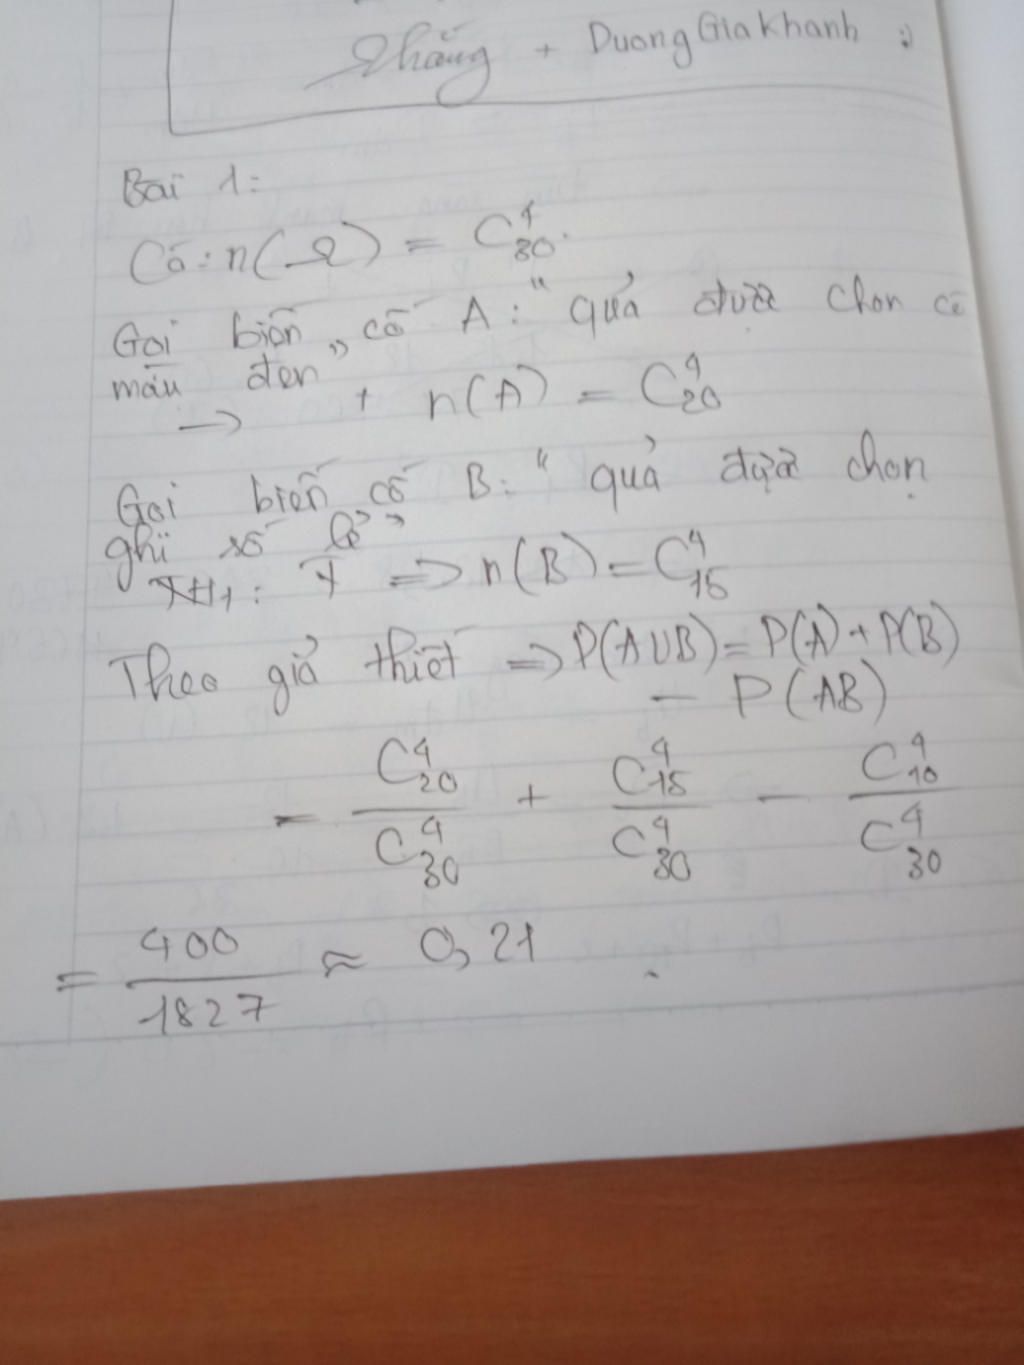 Thắng + Duong Gia Khanh :)
Bài 1:
Có: n(Ω) = C⁴₃₀.
Gọi biến cố A: "quả được chọn có
màu đen"
→ + n(A) = C⁴₂₀
Gọi biến cố B: "quả được chọn
ghi số lẻ"
TH1: ⇒ n(B) = C⁴₁₅
Theo giả thiết ⇒ P(A∪B) = P(A) + P(B)
− P(AB)
= C⁴₂₀/C⁴₃₀ + C⁴₁₅/C⁴₃₀ − C⁴₁₀/C⁴₃₀
= 400/1827 ≈ 0,21